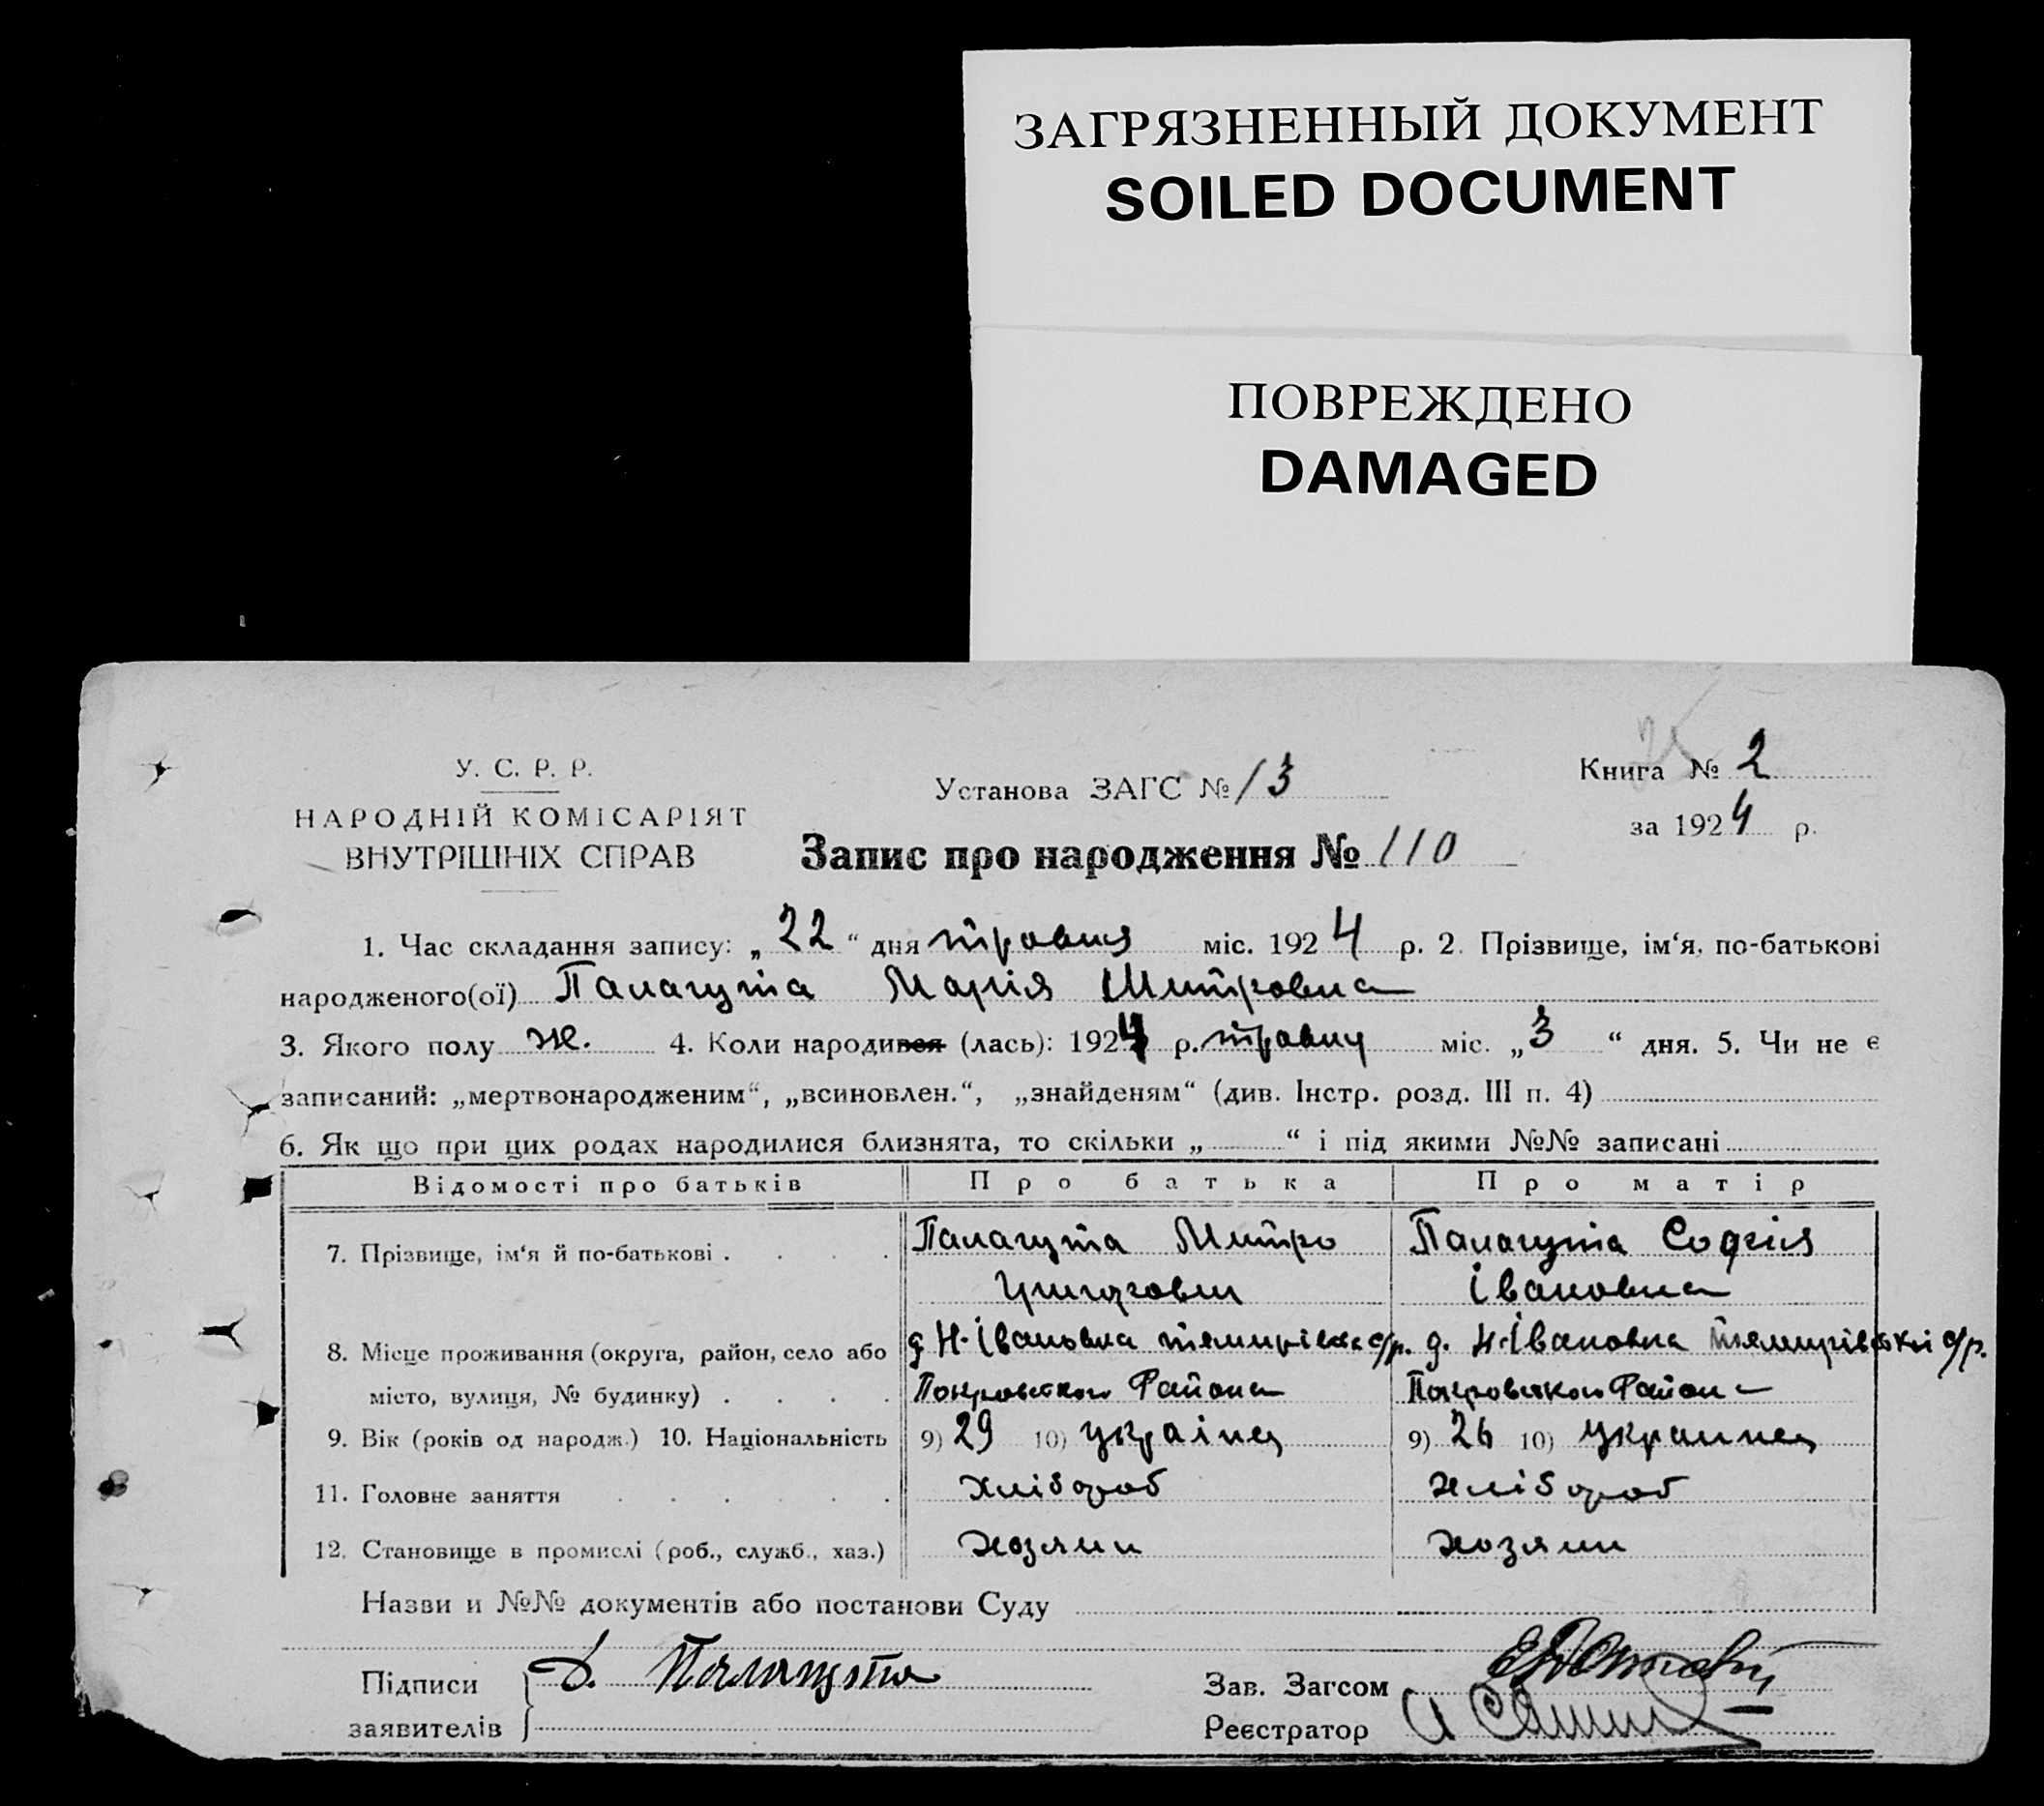 ЗАГРЯЗНЕННЫЙ ДОКУМЕНТ
SOILED DOCUMENT
ПОВРЕЖДЕНО
DAMAGED
У. С. Р. Р.
НАРОДНІЙ КОМІСАРІЯТ
ВНУТРІШНІХ СПРАВ
Установа ЗАГС № 13
Книга № 2
за 1924 р.
Запис про народження № 110
1. Час складання запису: „22“ дня травня міс. 1924 р. 2. Прізвище, ім‘я, по-батькові
народженого(ої) Палагута Марія Митровна
3. Якого полу ж. 4. Коли народився (лась): 1924 р. травня міс. „3“ дня. 5. Чи не є
записаний: „мертвонародженим“, „всиновлен.“, „знайденям“ (див. Інстр. розд. III п. 4)
6. Як що при цих родах народилися близнята, то скільки „ “ і під якими №№ записані
Відомості про батьків Про батька Про матір
7. Прізвище, ім‘я й по-батькові . . . . Палагута Митро Палагута Софія
Івановна
8. Місце проживання (округа, район, село або д. Н-Івановка с/р. д. Н-Івановка с/р.
місто, вулиця, № будинку) . . . . Покровского Району Покровского Району
9. Вік (років од народж.) 10. Національність 9) 29 10) українец 9) 26 10) украинец
11. Головне заняття . . . . . . хлібороб хлібороб
12. Становище в промислі (роб., служб., хаз.) хозяин хозяин
Назви и №№ документів або постанови Суду
Підписи Д. Палагута Зав. Загсом
заявителів Реєстратор